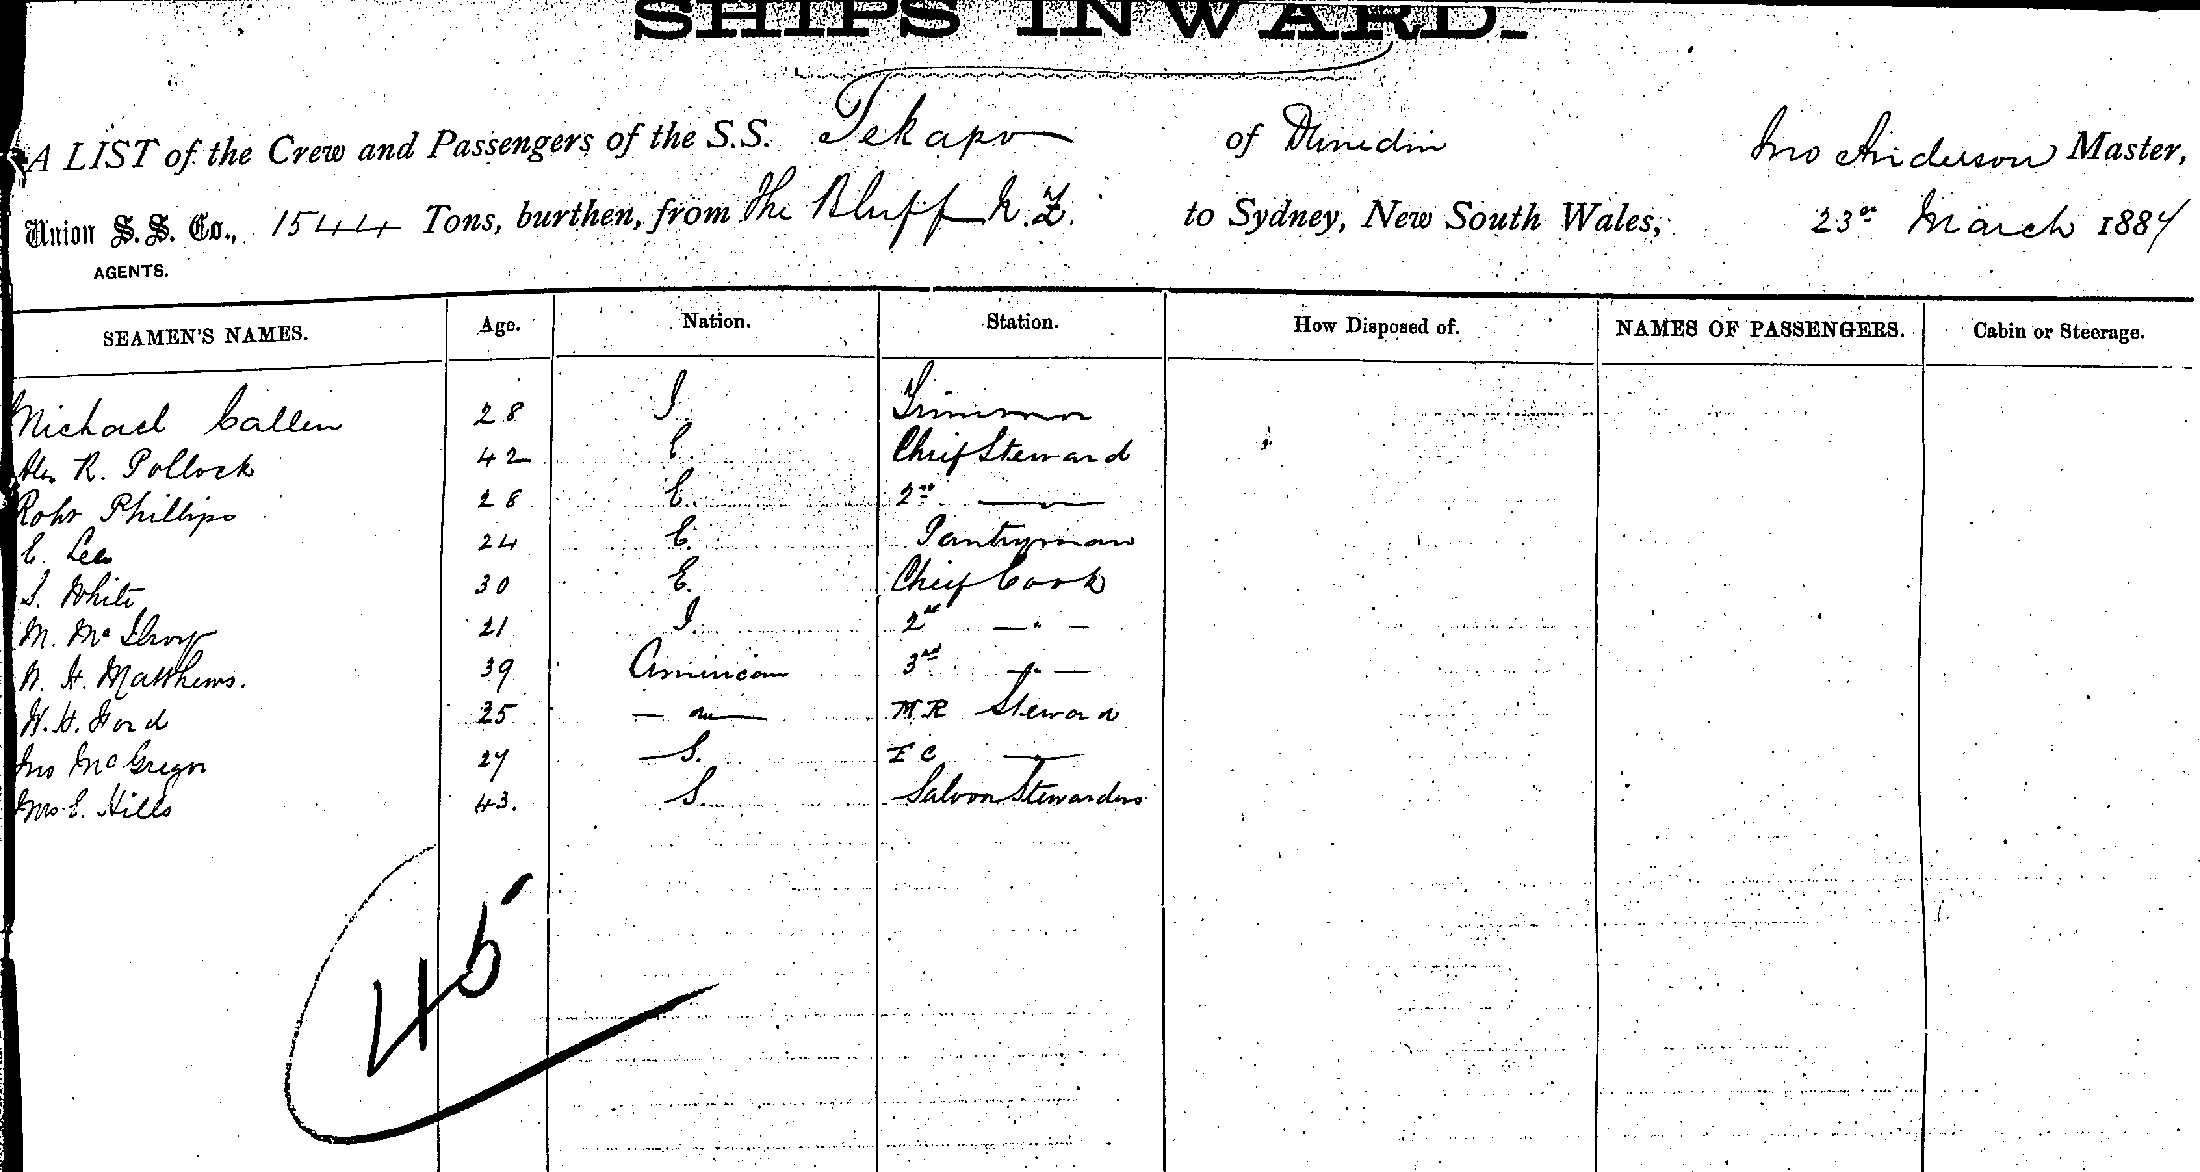 SHIPS INWARD.
A LIST of the Crew and Passengers of the S.S. Tekapo of Dunedin Jno Anderson Master,
Union S. S. Co., 1544 Tons, burthen, from The Bluff N.Z. to Sydney, New South Wales, 23rd March 1884
AGENTS.
SEAMEN'S NAMES. Age. Nation. Station. How Disposed of. NAMES OF PASSENGERS. Cabin or Steerage.
Michael Callen 28 I. Trimmer
Alex R. Pollock 42 E. Chief Steward
Robt Phillips 28 E. 2nd —"—
E. Lee 24 E. Pantryman
J. White 30 E. Chief Cook
M. McIlroy 21 I. 2nd —"—
H. Matthews. 39 American 3rd —"—
W. H. Ford 25 —"— M R Steward
Jno McGregor 27 S. F C —"—
Mrs E. Hills 43. S. Saloon Stewardess
45